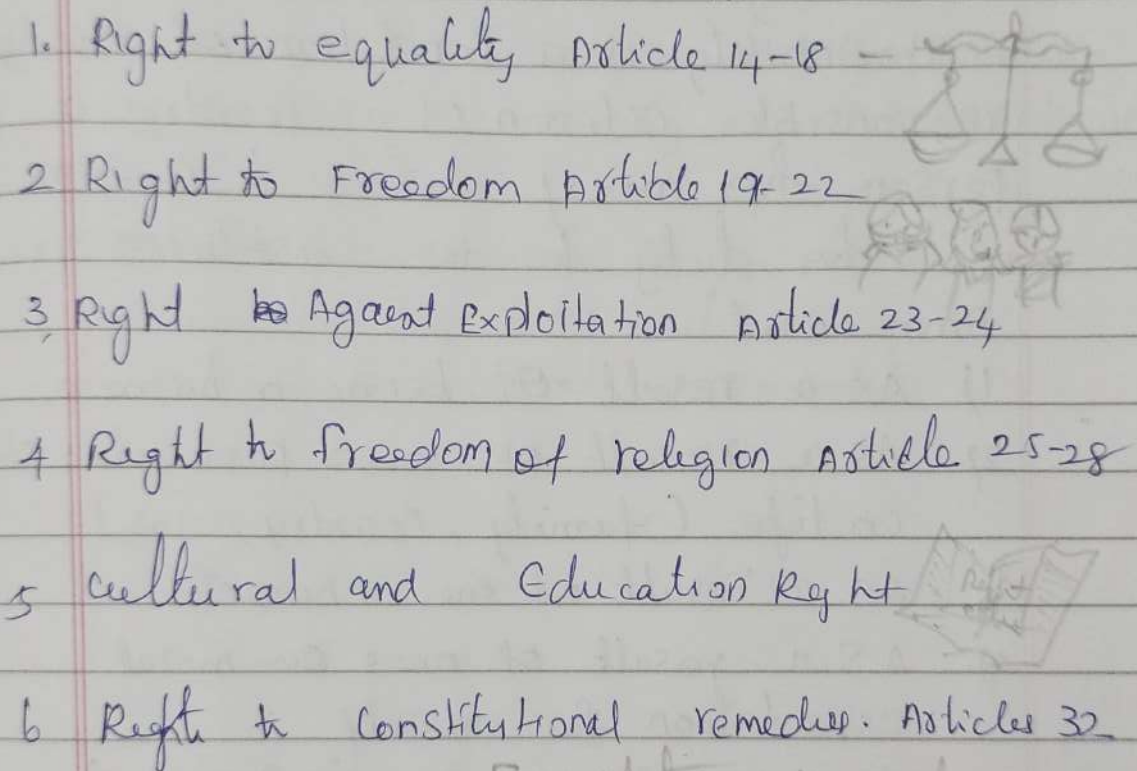 1. Right to equality Article 14-18 -
2 Right to Freedom Artible 19-22
3, Right Agaeat Exploitation Article 23-24
4 Right to freedom of religion Article 25-28
5 Cultural and Education Right
6 Right to Constitutional remedies. Articles 32